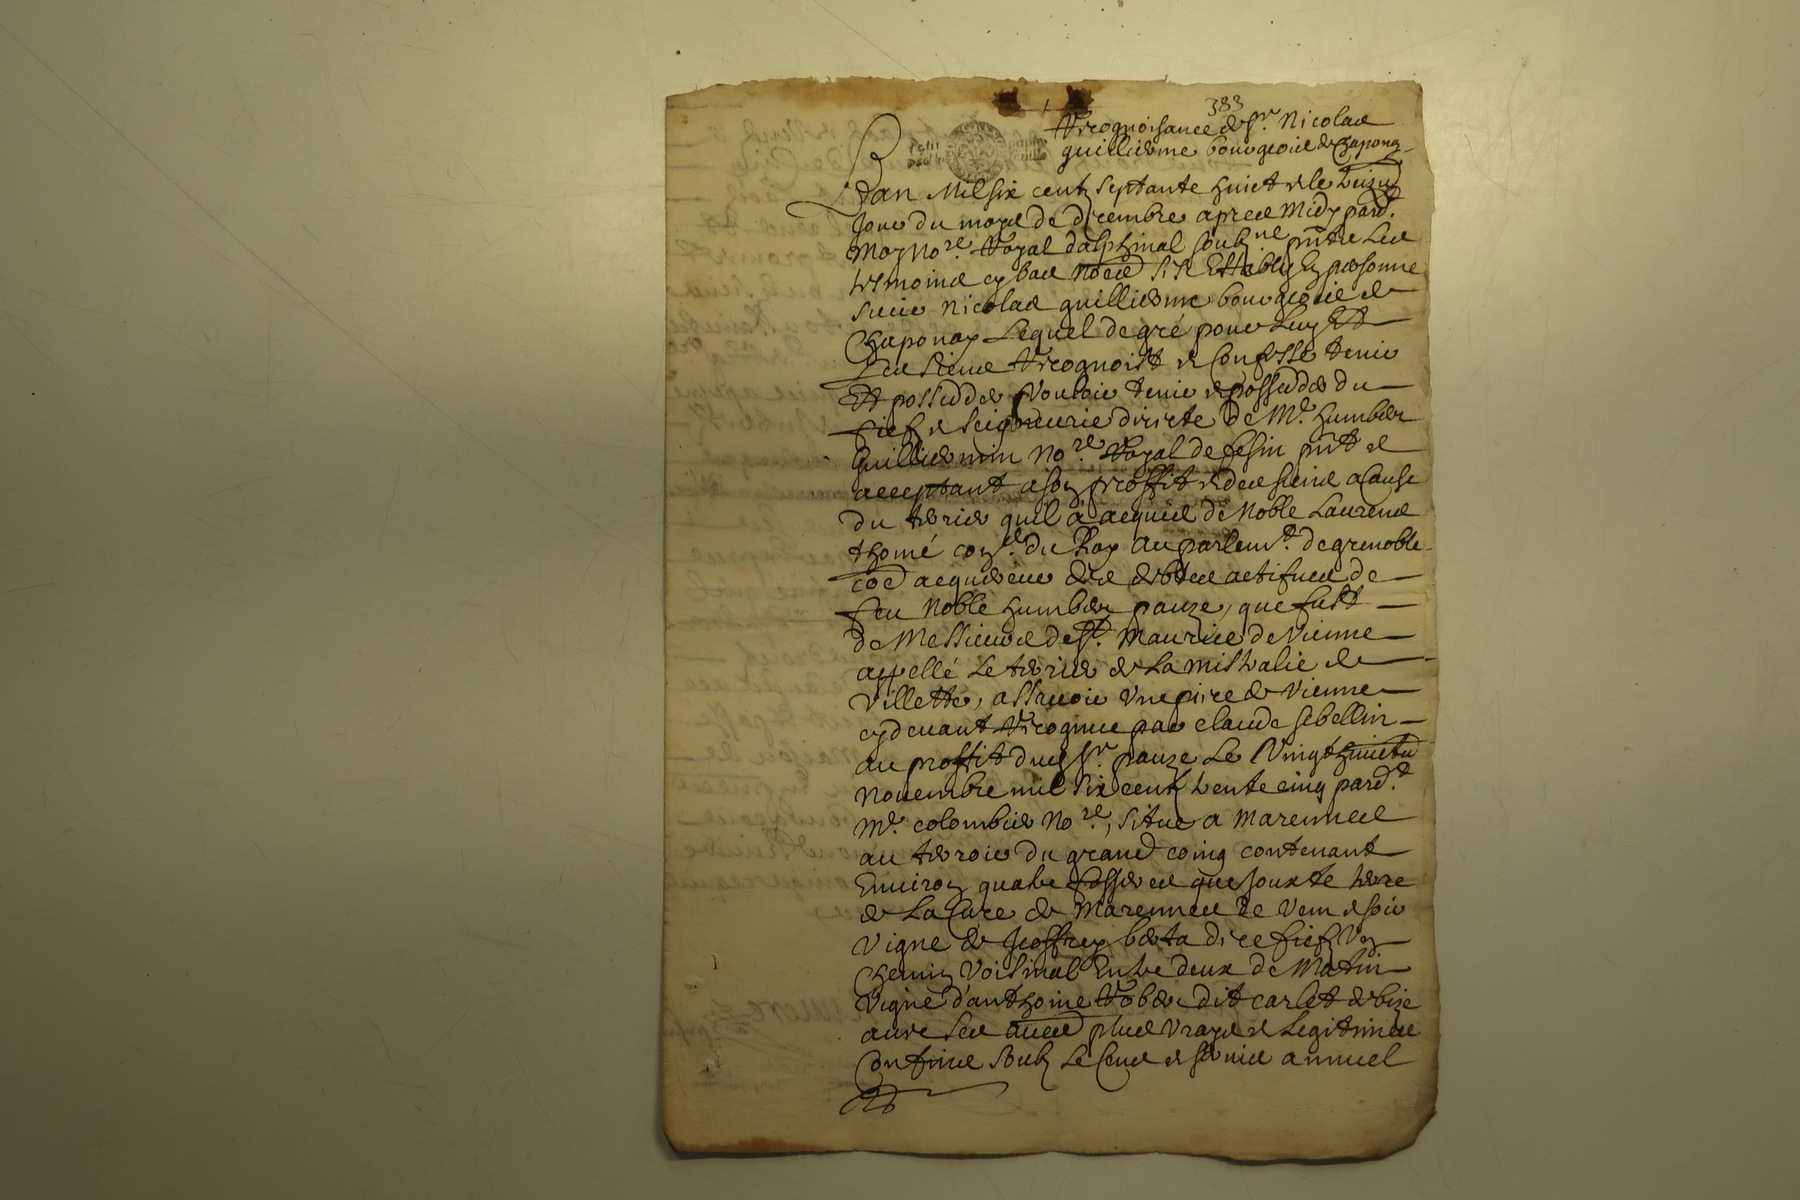 383
Recognoissance de Sr. Nicolas
guillierme bourgeois de Chaponay
Petit papier
L'an Mil six centz septante huict & le treizie
Jour du moys de decembre apres Midy pard.t
Moy No.re Royal dalphinal soubz.ne pnt & les
tesmoins cy bas només s'est Estably En personne
sieur Nicolas guillierme bourgeois de
Chaponay Lequel de gré pour Luy Et
Les siens Recognoist & Confesse tenir
Et posseder Vouloir tenir & posseder du
fief & seigneurie directe de Me. humber
Guillermin No.re Royal de fesin pnt &
acceptant a son proffit & des siens a Cause
du terrier quil a acquis de Noble Laurens
thomé con.er du Roy au parlem.t de grenoble
acquereur des debtes actifues de
feu Noble humber pauze, que fust
de Messieurs de St. Maurice de Vienne
appellé Le terrier de La mistralie de
Villette, assavoir Une piece de Vienne
cydevant Recognue par claude sebellin
au proffit dud. Sr. pauze Le Vingt huictie
Novembre mil six centz trente cinq pard.t
Me. colombier No.re, situe a Marennes
au terroir du grand coing contenant
Environ quatre fosserees que jouxte terre
de La Cure de Marennes de Vent & soir
Vigne de Jeoffrey berta dice fief Un
Chemin Voisinal Entre deux de Matin
Vigne d'anthoine Rober dit carlet de bize
avec ses aultres plus Vrays & Legitimes
Confins Soubz Le Cens & servis annuel